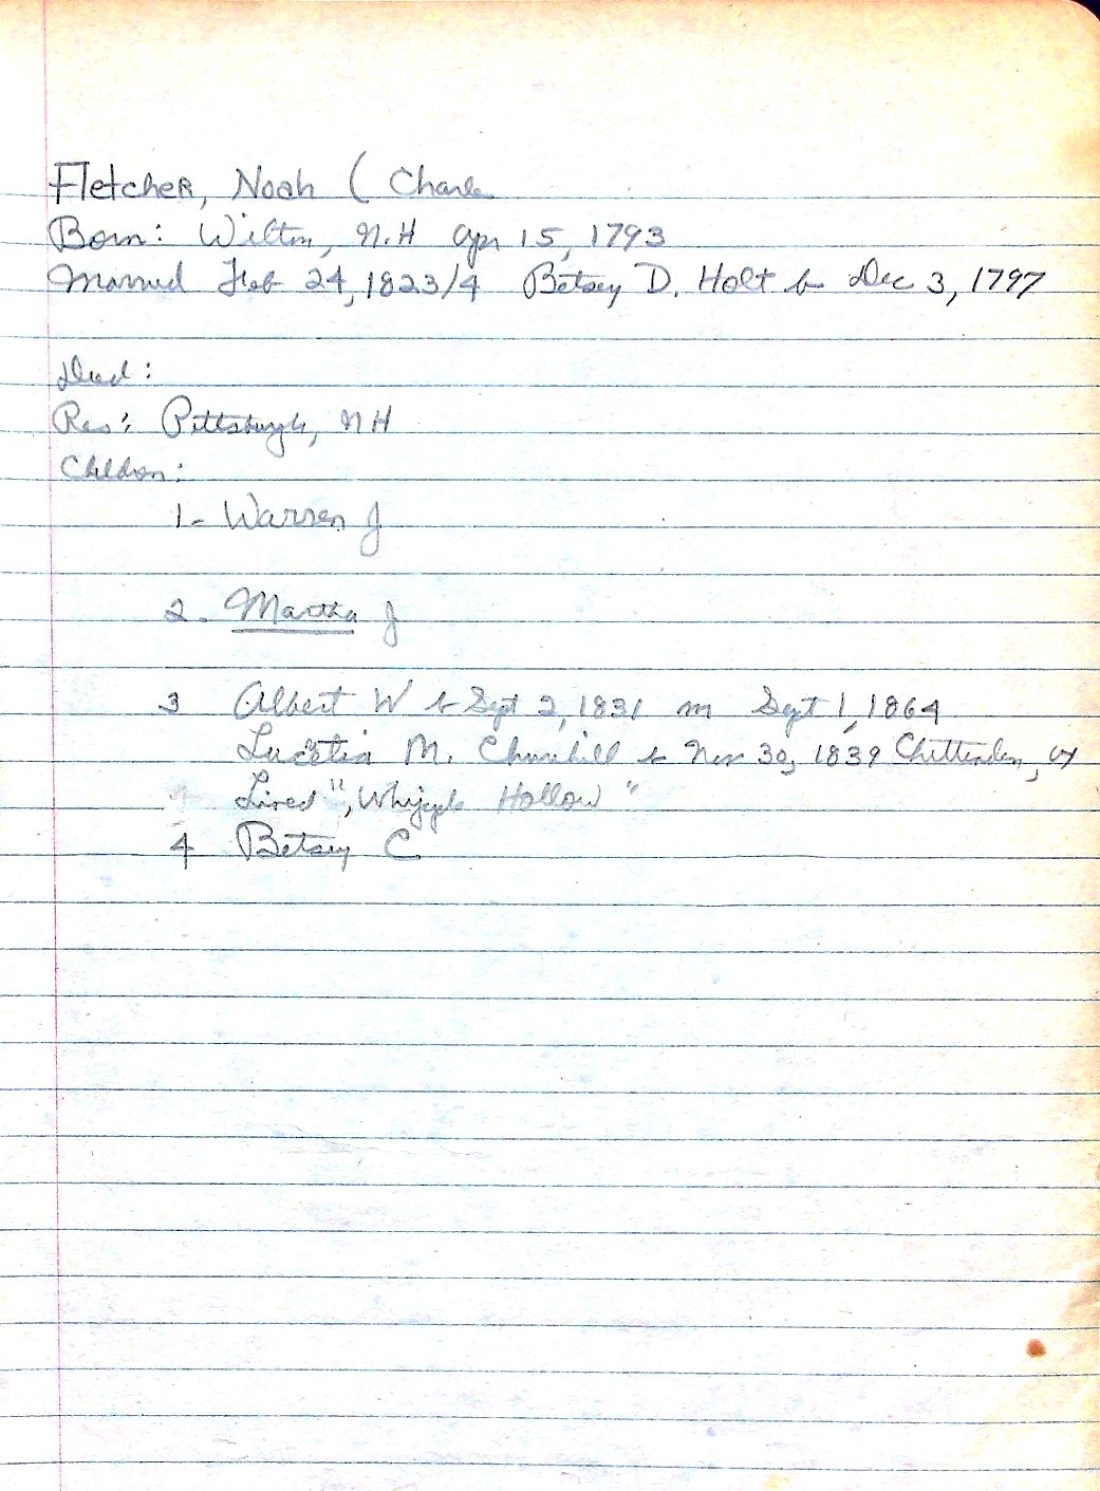 Fletcher, Noah ( Charle
Born: Wilton, N.H Apr 15, 1793
Married Feb 24, 1823/4 Betsey D. Holt b Dec 3, 1797
Died:
Res: Pittsburgh, NH
Children:
1- Warren J
2. Martha J
3 Albert W b Sept 2, 1831 m Sept 1, 1864
Lucetia M. Churchill b Nov 30, 1839 Chittenden, VT
Lived ", Whipple Hollow "
4 Betsey C